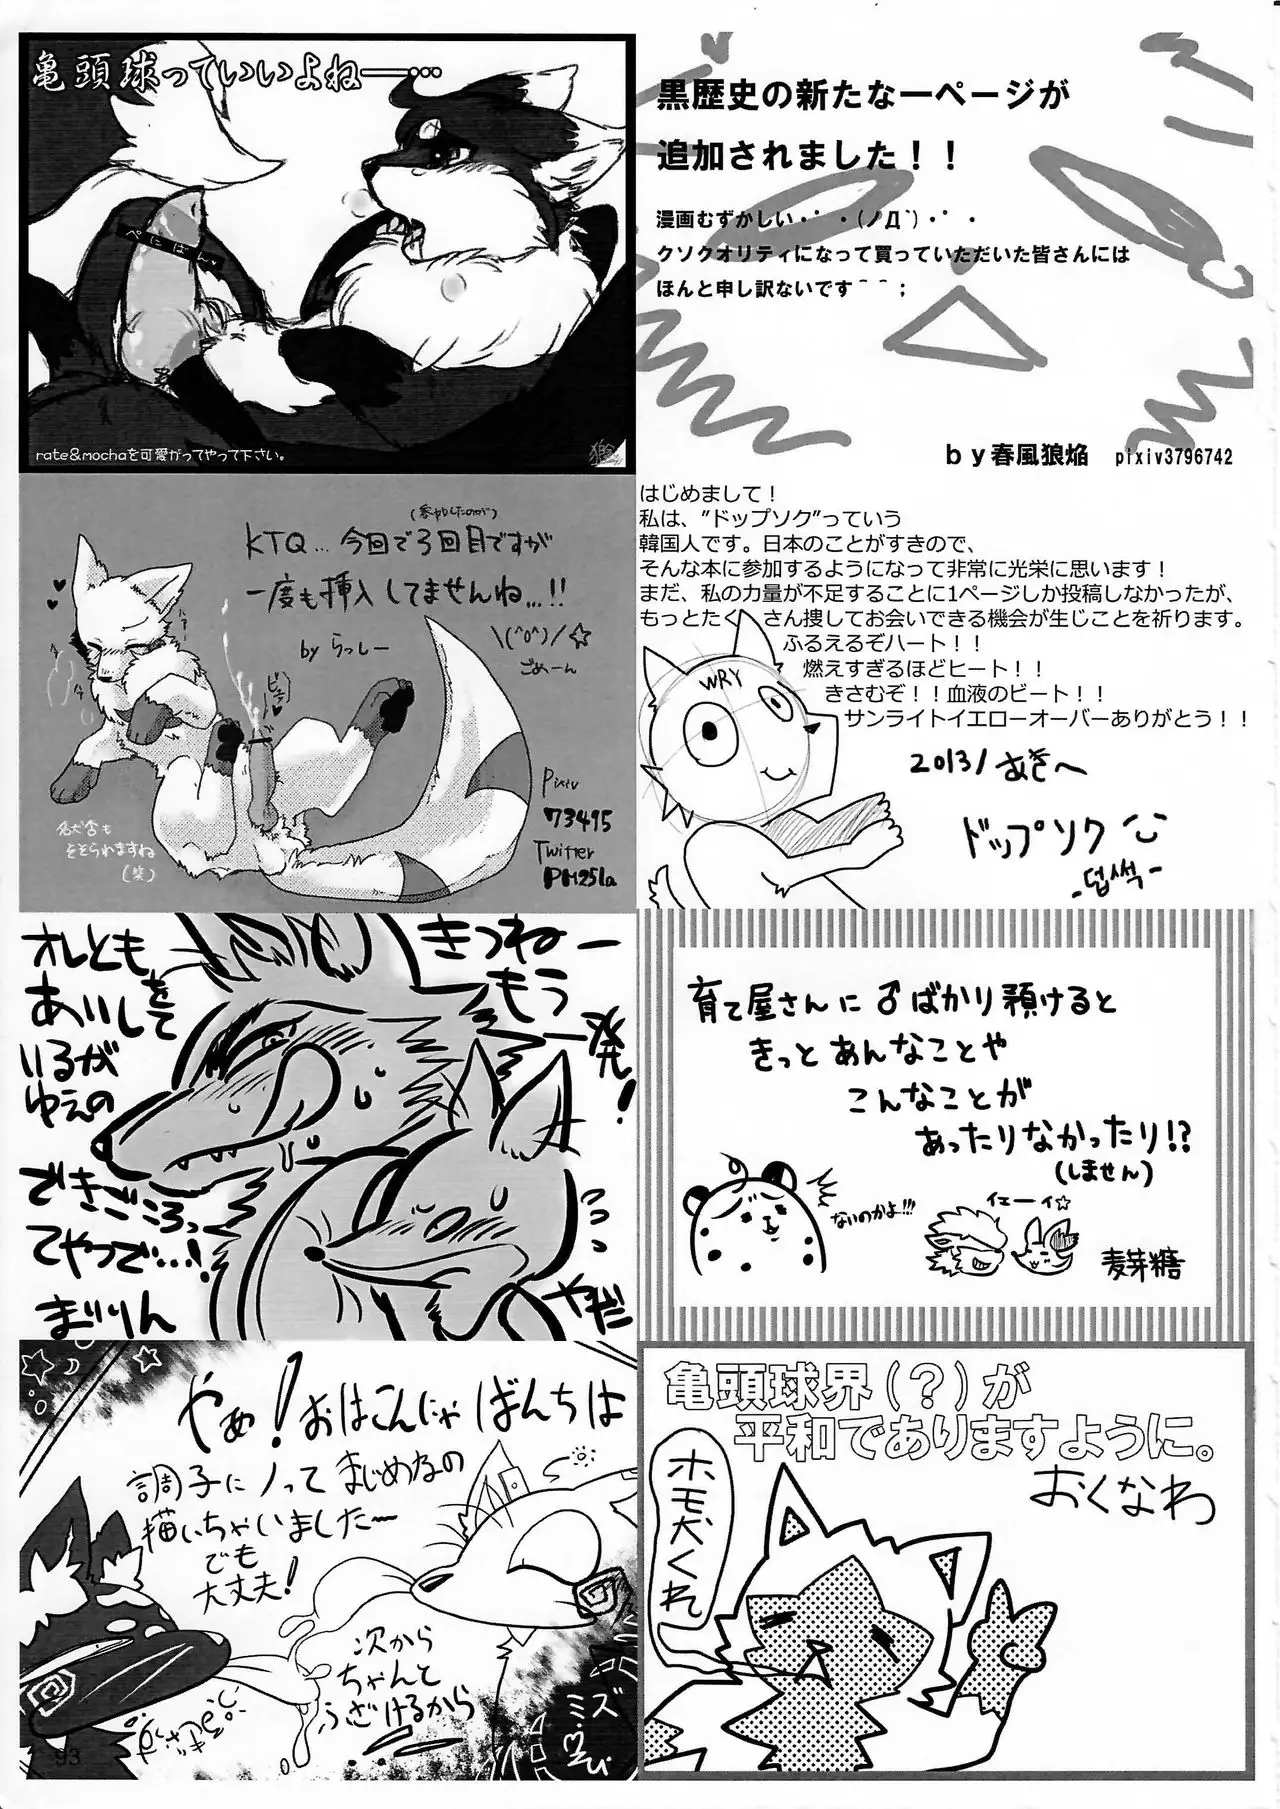 亀頭球っていいよねー…
ぺにばん
rate&mochaを可愛がってやって下さい。
黒歴史の新たな一ページが
追加されました！！
漫画むずかしい・゜・(ノД`)・゜・
クソクオリティになって買っていただいた皆さんには
ほんと申し訳ないです＾＾；
by春風狼焔 pixiv3796742
(参加したのが)
KTQ…今回で3回目ですが
一度も挿入してませんね…!!
by らっしー
\(^o^)/☆
ごめーん
も
そそられますね
(笑)
Pixiv
73495
Twitter
PM251a
はじめまして！
私は、”ドップソク”っていう
韓国人です。日本のことがすきので、
そんな本に参加するようになって非常に光栄に思います！
まだ、私の力量が不足することに1ページしか投稿しなかったが、
もっとたくさん捜してお会いできる機会が生じことを祈ります。
ふるえるぞハート！！
燃えすぎるほどヒート！！
きさむぞ！！血液のビート！！
サンライトイエローオーバーありがとう！！
WRY
2013/あきへ
ドップソク
-덥썩-
きつねー
もう
一発！
オレとも
あいしをて
いるが
ゆえの
できごころっ
てやつで…！
まりりん
やだ
育て屋さんに♂ばかり預けると
きっとあんなことや
こんなことが
あったりなかったり!?
(しません)
ないのかよ!!!
イェーィ☆
麦芽糖
やぁ！おはこんにゃばんちは
調子にノってまじめなの
描いちゃいました～
でも
大丈夫！
次から
ちゃんと
ふざけるから
ミズ
93
亀頭球界(？)が
平和でありますように。
おくなわ
ホモ犬くれ